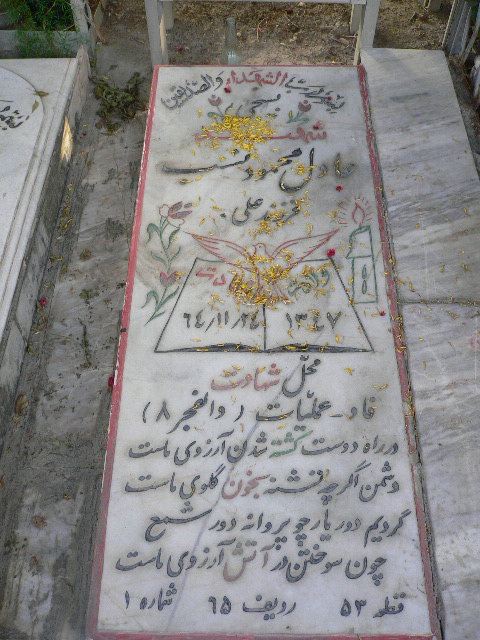 من ... الشهداء والصدیقین
بسمه تعالی
شهید
عادل محمود نسب
فرزند علی
ولادت
شهادت
۱۳۴۷
۶۴/۱۱/۲۴
محل شهادت
فاو - عملیات (والفجر ۸)
در راه دوست کشته شدن آرزوی ماست
دشمن اگرچه تشنه بخون گلوی ماست
گردیم دور یار چو پروانه دور شمع
چون سوختن در آتش آرزوی ماست
قطعه ۵۳ ردیف ۶۵ شماره ۱